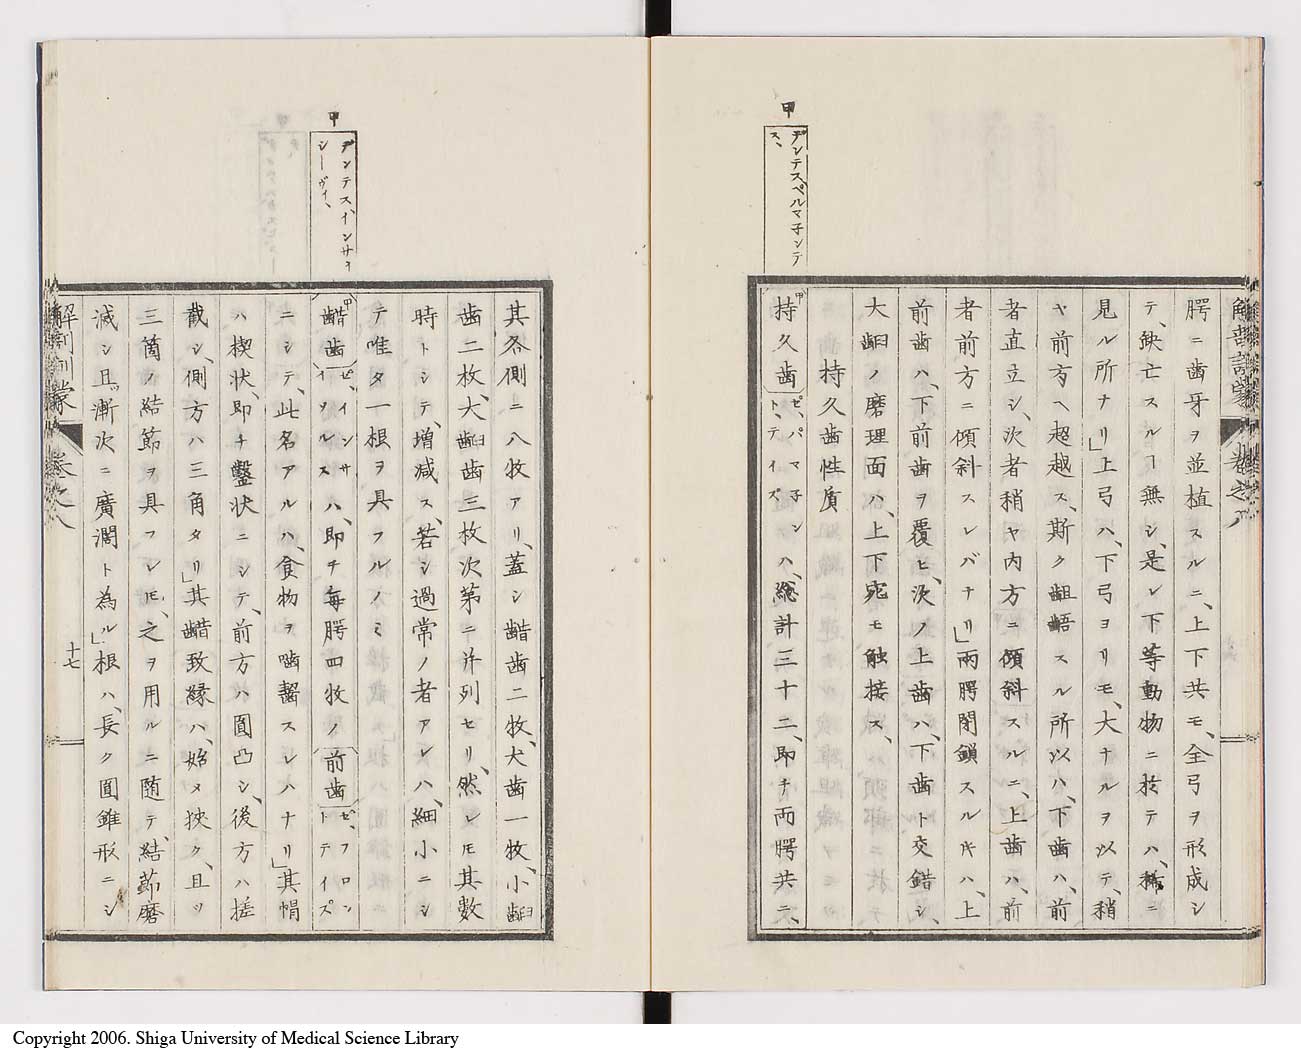 甲
デンテスペルマ子ンテ
ス、
解剖訓蒙
卷之八
腭ニ齒牙ヲ並植スルニ、上下共モ、全弓ヲ形成シ
テ、缺亡スルヿ無シ、是レ下等動物ニ於テハ、稀ニ
見ル所ナリ」上弓ハ、下弓ヨリモ、大ナルヲ以テ、稍
ヤ前方ヘ超越ス、斯ク齟齬スル所以ハ、下齒ハ、前
者直立シ、次者稍ヤ內方ニ傾斜スルニ、上齒ハ、前
者前方ニ傾斜スレバナリ」兩腭閉鎖スルキハ、上
前齒ハ、下前齒ヲ覆ヒ、次ノ上齒ハ、下齒ト交錯シ、
大齠ノ磨理面ハ、上下宛モ触接ス、
持久齒性質
甲持久齒ピ、パマ子ン
ト、テイズハ、總計三十二、即チ兩腭共ニ、
甲
デンテス、インサイ
シーヴイ、
其各側ニ八枚アリ、蓋シ齰齒二枚、犬齒一枚、小齠
齒二枚、大齠齒三枚、次第ニ并列セリ、然レ𪜈其數
時トシテ、增減ス、若シ過常ノ者アレハ、細小ニシ
テ唯タ一根ヲ具フルノミ
甲齰齒ピ、インサ
イソルスハ、即チ每腭四枚ノ前齒ゼ、フロン
トテイズ
ニシテ、此名アルハ、食物ヲ嚙齧スレハナリ」其㡌
ハ楔狀、即チ鑿狀ニシテ、前方ハ圓凸シ、後方ハ搓
截シ、側方ハ三角タリ」其齰致緣ハ、始メ狹ク、且ツ
三箇ノ結節ヲ具フレ𪜈、之ヲ用ルニ隨テ、結節磨
滅シ且漸次ニ廣濶ト為ル」根ハ、長ク圓錐形ニシ
解剖訓蒙
卷之八
十七
Copyright 2006. Shiga University of Medical Science Library